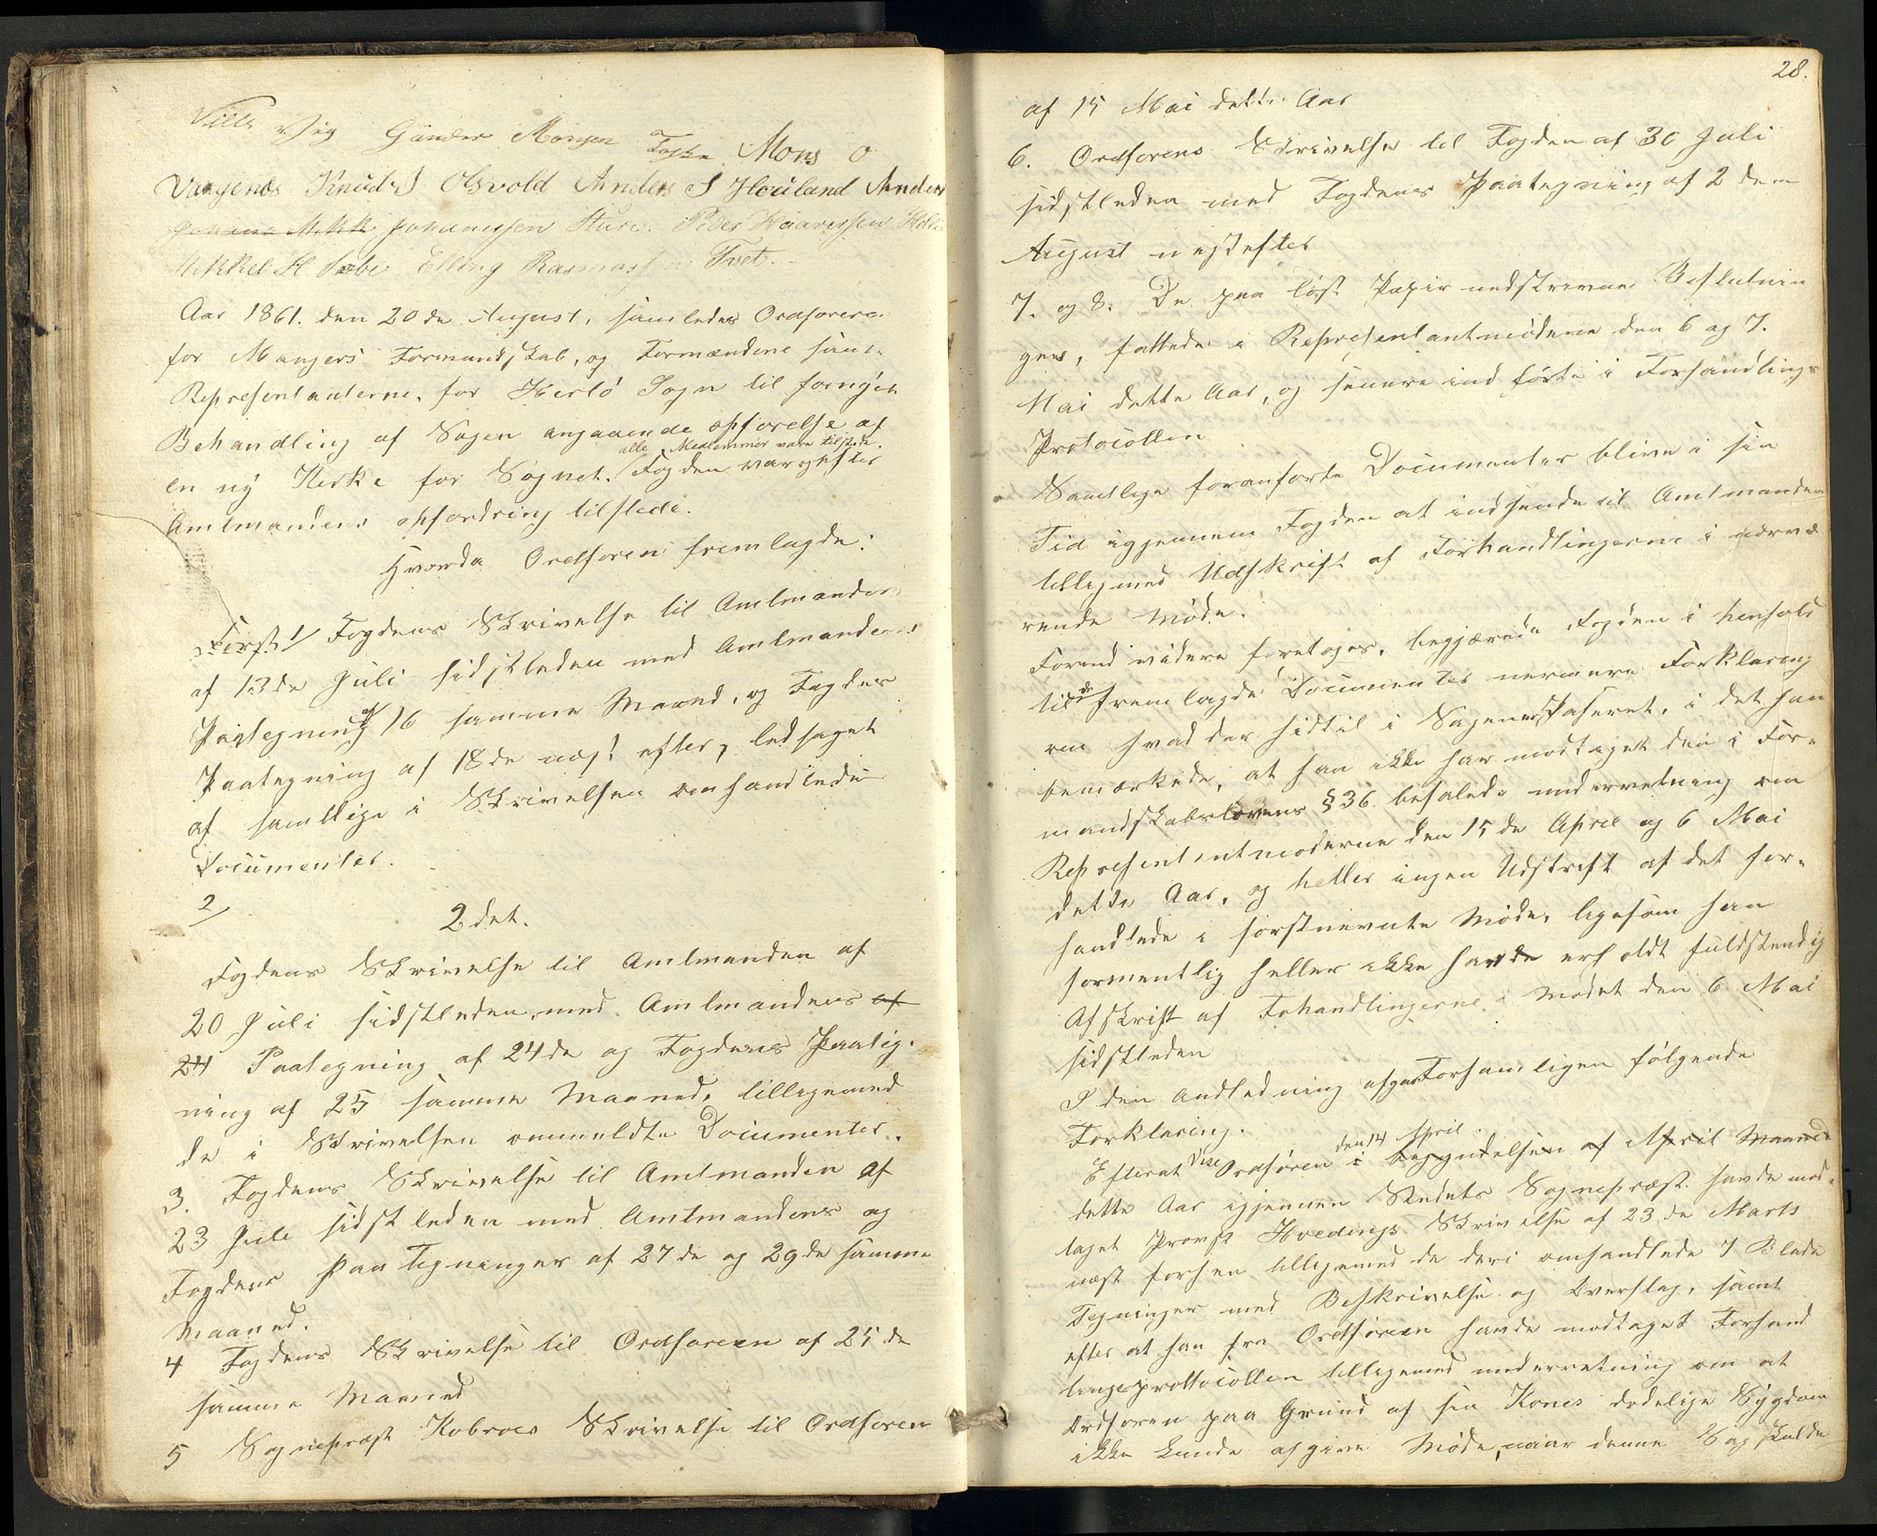 Gunder Monsen Mons O
Vaagenes Knud J Olsvold Anders J Houland Anders
Johannessen Sture. Peder Haaversen
Mikkel H Sæbe Elling Rasmussen Tvet.
Aar 1861. den 20de August, samledes Ordføreren
for Mangers Formandskab, og Formændene samt
Representanterne, for Herlø Sogn til fornyet
Behandling af Sagen angaaende opførelse af
alle Medlemmer vare tilstede.
en ny Kirke for Sognet. Fogden var efter
Amtmandens opfordring tilstede.
Hvorda Ordføren fremlagde:
Først 1/ Fogdens Skrivelse til Amtmanden
af 13de Juli sidstleden med Amtmandens
Paategning af 16 samme Maaned, og Fogdens
Paategning af 18de næst efter, ledsaget
af samtlige i Skrivelsen omhandlede
Documenter.
2/
2det.
Fogdens Skrivelse til Amtmanden af
20 Juli sidstleden, med Amtmandens af
24 Paategning af 24de og Fogdens Paateg-
ning af 25 samme Maaned, tilligemed
de i Skrivelsen ommeldte Documenter.
3. Fogdens Skrivelse til Amtmanden af
23 Juli sidstleden med Amtmandens og
Fogdens Paategninger af 27de og 29de samme
Maaned.
4 Fogdens Skrivelse til Ordføreren af 25de
samme Maaned
5 Sognepræst Kobroes Skrivelse til Ordføren
28.
af 15 Mai dette Aar
6. Ordførens Skrivelse til Fogden af 30 Juli
sidstleden med Fogdens Paategning af 2den
August næstefter
7. og 8. De paa løst Papir nedskrevne Beslutnin
ger, fattede i Representantmøderne den 6 og 7.
Mai dette Aar, og senere indførte i Forhandlings
Protocollen
Samtlige foranførte Documenter blive i sin
Tid igjennem Fogden at indsende til Amtmanden
tilligemed Udskrift af Forhandlingerne i nærvæ
rende Møde.
Forend videre foretoges, begjærede Fogden i henhold
til de fremlagde Documenter nærmere Forklaring
om hvad der hidtil i Sagen er Paseret, i det han
bemærkede, at han ikke har modtaget den i For-
mandskabslovens § 36 befalede underretning om
Representantmøderne den 15de April og 6 Mai
dette Aar, og heller ingen Udskrift af det for-
handlede i førstnevnte Møde, ligesom han
formentlig heller ikke havde erholdt fuldstendig
Afskrift af Fohandlingerne i Mødet den 6 Mai
sidstleden
I den Andledning afgav Forsamligen følgende
Forklaring.
den 14 April.
Efterat Vise Ordføren i begyndelsen af April Maaned
dette Aar igjennem Stedets Sognepræst havde mod-
taget Provst Hvedings Skrivelse af 23de Marts
næst forhen tilligemed de deri omhandlede 7 Blade
Tegninger med Beskrivelse og Overslag, samt
efter at han fra Ordføreren havde modtaget Forhand
lingsprottocollen tilligemed underretning om at
Ordføren paa Grund af sin Kones dødelige Sygdom
ikke kunde afgive Møde, naar denne Sag skulde